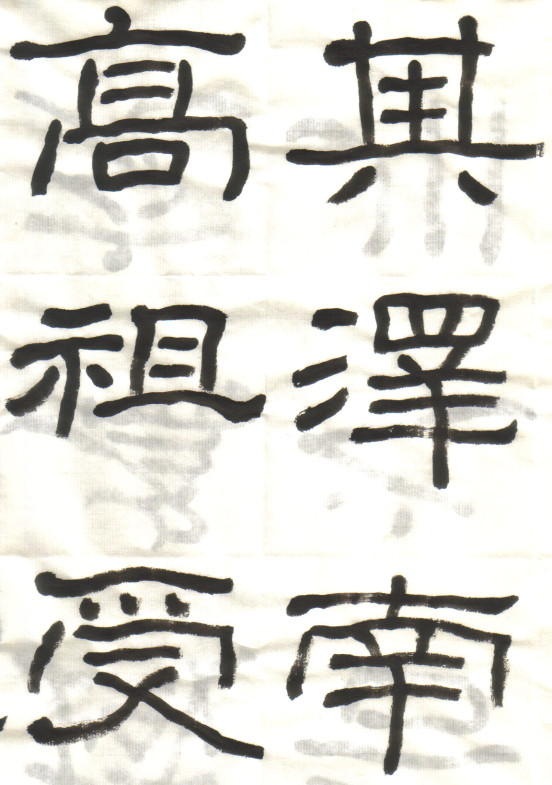 其澤南
高祖受